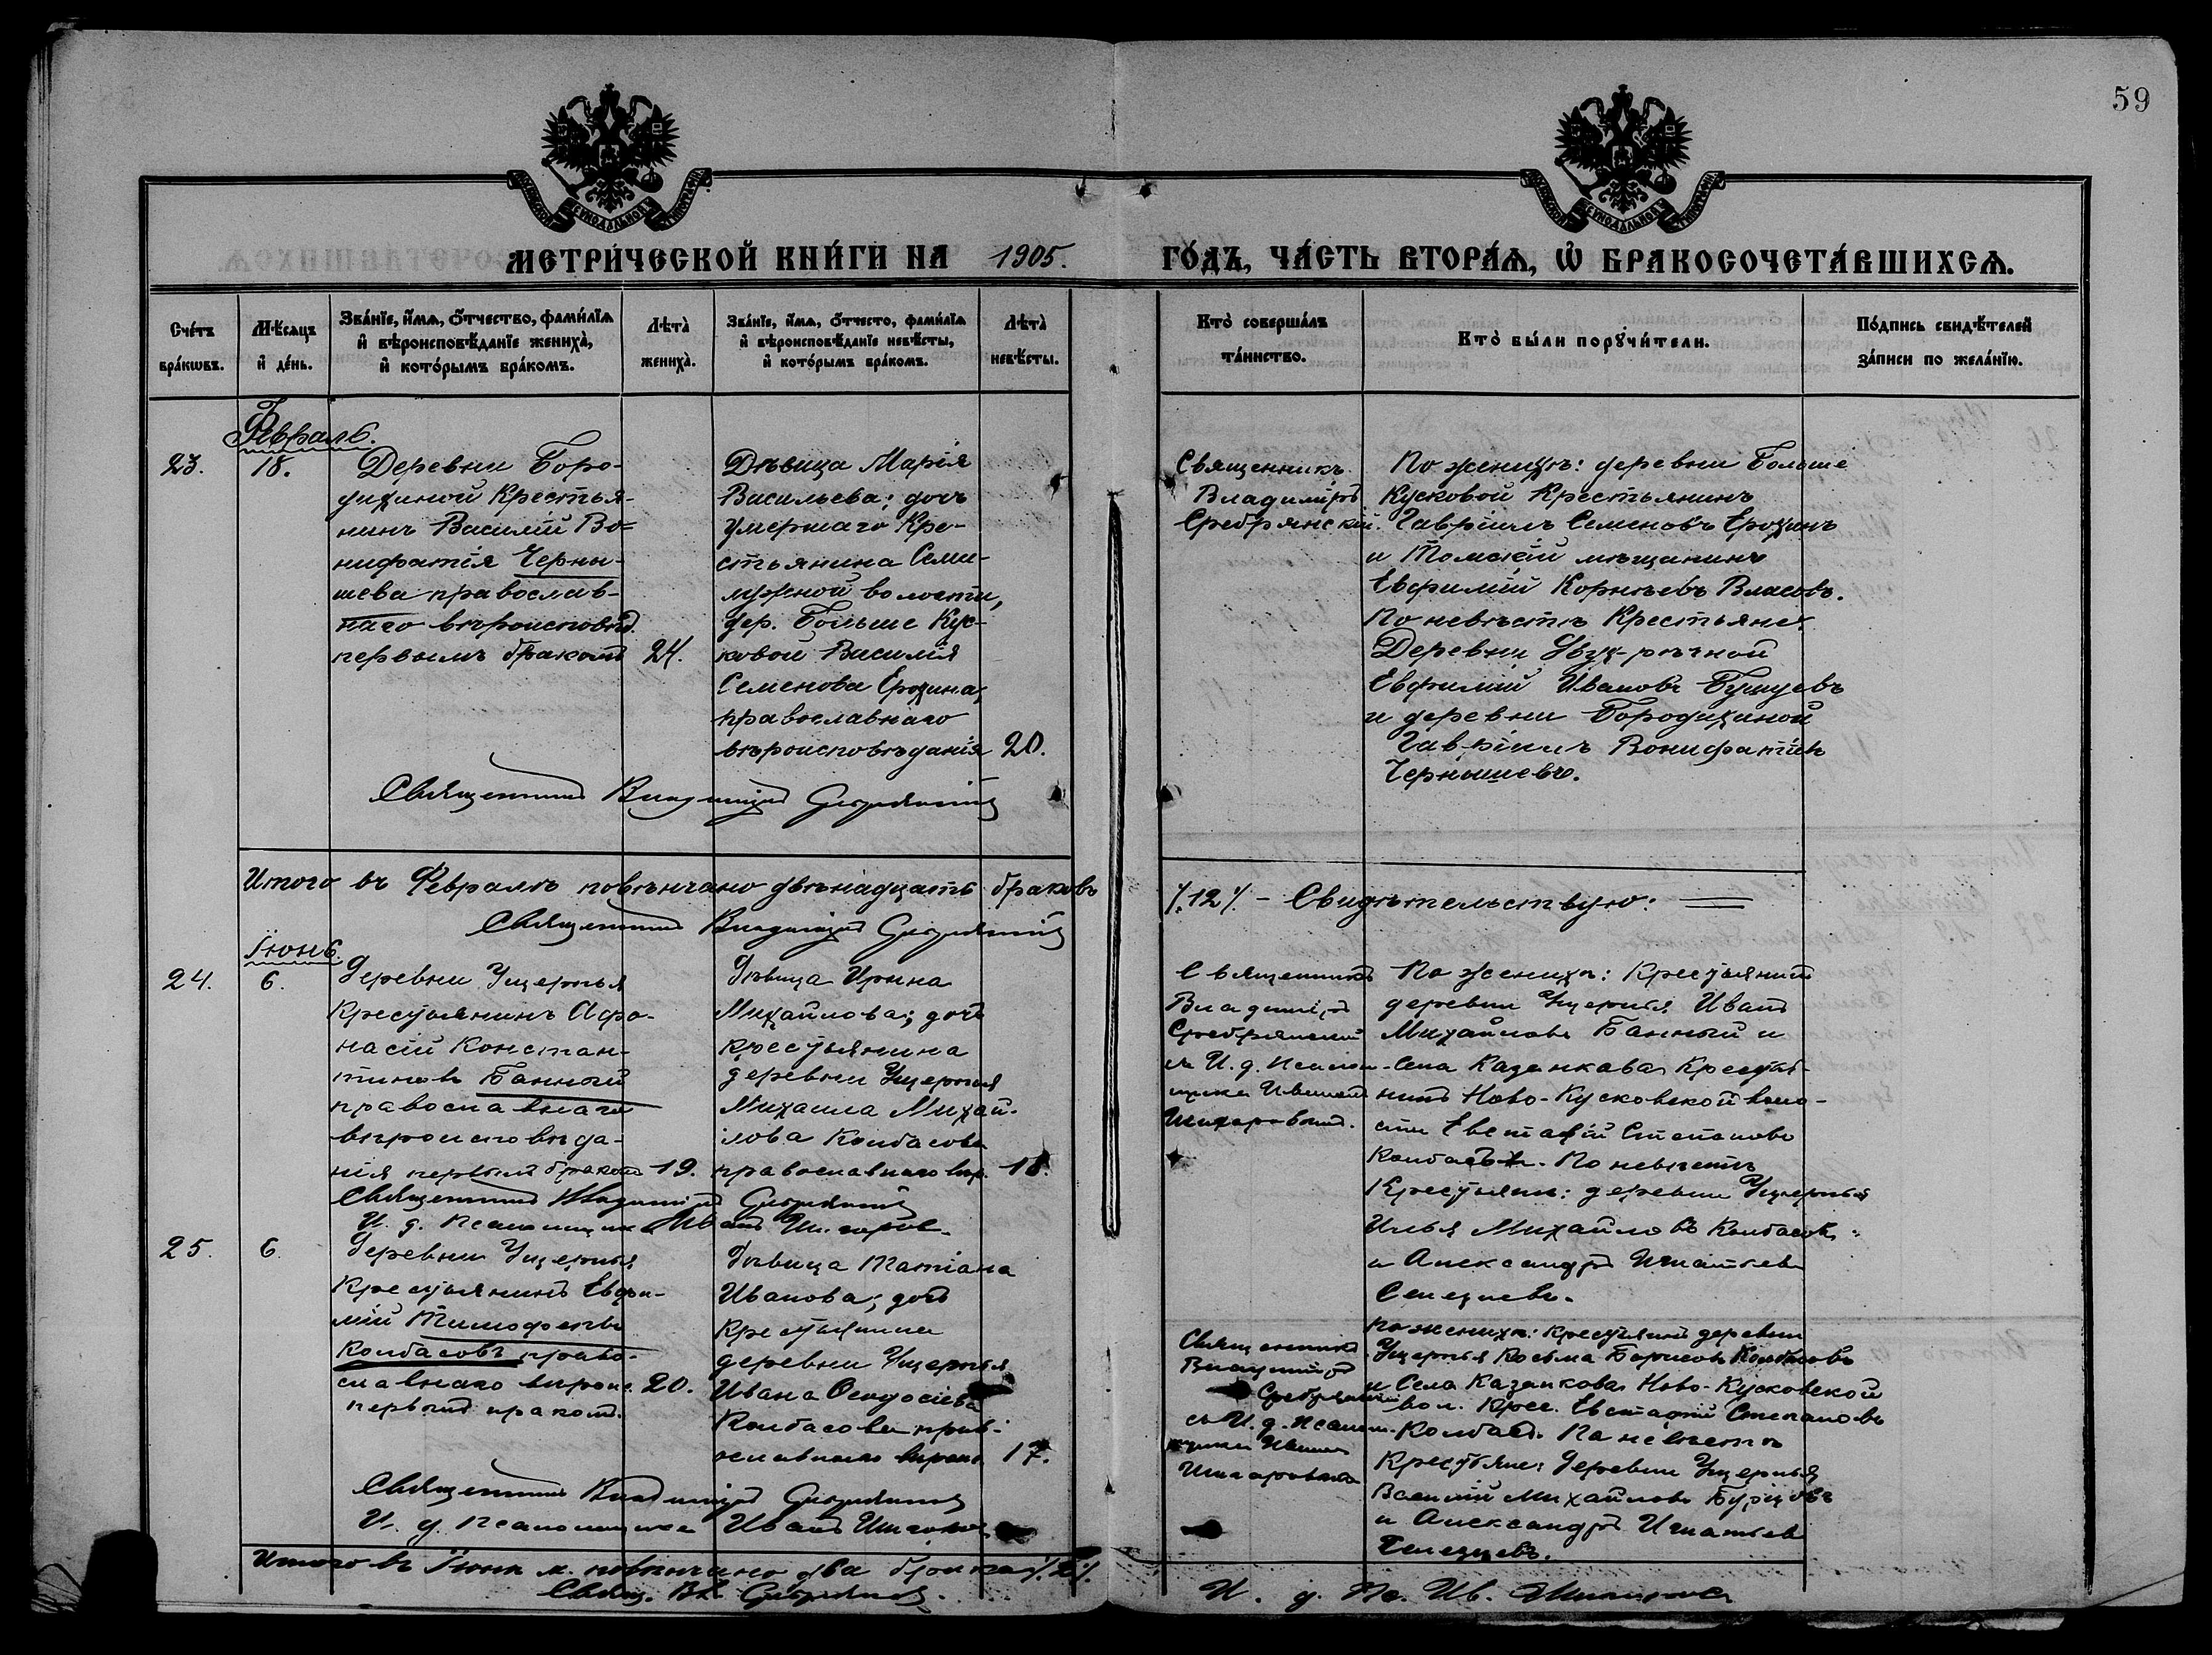 59
МЕТРИ́ЧЕСКОЙ КНИ́ГИ НА 1905. ГО́ДЪ, ЧА́СТЬ ВТОРА́Ѧ, Ѡ҆ БРАКОСОЧЕТА́ВШИХСѦ.
Сче́тъ бра́кѡвъ.
Мѣ́сѧцъ и҆ де́нь.
Зва́нїе, и҆́мѧ, о҆́тчество, фами́лїѧ
и҆ вѣроисповѣ́данїе жениха̀,
и҆ кото́рымъ бра́комъ.
Лѣта̀ жениха̀.
Зва́нїе, и҆́мѧ, о҆́тчесто, фами́лїѧ
и҆ вѣроисповѣ́данїе невѣ́сты,
и҆ кото́рымъ бра́комъ.
Лѣта̀ невѣ́сты.
Кто̀ соверша́лъ
та́инство.
Кто̀ бы́ли порꙋчи́тели.
По́дпись свидѣ́телей
за́писи по жела́нїю.
Февраль.
23.
18.
Деревни Боро-
дихиной Крестья-
нинъ Василій Во=
нифатія Черны-
шева православ-
наго вѣроисповѣд.
первымъ бракомъ
24.
Дѣвица Марія
Васильева; дочь
умершаго Кре-
стьянина Семи-
лужной волости,
дер. Больше Кус-
ковой Василія
Семенова Ерохина,
православнаго
вѣроисповѣданія
20.
Священникъ
Владиміръ
Сребрянскій.
По женихѣ: деревни Больше
Кусковой Крестьянинъ
Гавріилъ Семеновъ Ерохинъ
и Томскій мѣщанинъ
Евфимій Корнѣевъ Власовъ.
По невѣстѣ Крестьяне:
Деревни Двух-рѣчной
Евфимій Ивановъ
и деревни Бородихиной
Гавріилъ Вонифатіевъ
Чернышевъ.
Священникъ Владиміръ Сребрянскій
Итого въ Февралѣ повѣнчано двѣнадцать браковъ
/.12/. - Свидѣтельствую:
Священникъ Владиміръ Сребрянскій
Іюнь.
24.
6.
Деревни Ущерпья
Крестьянинъ Афа-
насій Констан-
тиновъ Банный
православнаго
вѣроисповѣда-
нія первымъ бракомъ
19.
Дѣвица Ирина
Михайлова; дочь
крестьянина
деревни Ущерпья
Михаила Михай-
лова Колбасова
православнаго вѣр.
18.
Священникъ
Владиміръ
Сребрянскій
съ И. д. псалом-
щика Иваномъ
По женихѣ: Крестьянинъ
деревни Ущерпья Иванъ
Михайловъ Банный и
села Казанкова Крестья-
нинъ Ново-Кусковской воло-
сти Евстафій Степановъ
По невѣстѣ
Крестьяне: деревни Ущерпья
Илья Михайловъ Колбасовъ
и Александръ Игнатьевъ
Священникъ Владиміръ Сребрянскій
И. д. псаломщика Иванъ
25.
6.
Деревни Ущерпья
Крестьянинъ Евфи-
мій Тимофеевъ
Колбасовъ право-
славнаго вѣроис.
первымъ бракомъ.
20.
Дѣвица Татіана
Иванова; дочь
Крестьянина
деревни Ущерпья
Ивана Феодосіева
Колбасова прав-
ославнаго вѣроис.
17.
Священникъ
Владиміръ
Сребрянскій
съ И. д. псалом-
щика Иваномъ
По женихѣ: крестьянинъ деревни
Ущерпья Косьма Борисовъ Колбасовъ
и Села Казанкова Ново-Кусковской
вол. Крес. Евстафій Степановъ
По невѣстѣ
Крестьяне: деревни Ущерпья
Василій Михайловъ
и Александръ Игнатьевъ
Священникъ Владиміръ Сребрянскій
И. д. псаломщика Иванъ
Итого въ Іюнѣ м. повѣнчано два брака /.2/.
Свящ. Вл. Сребрянскій.
И. д. Пс. Ив.